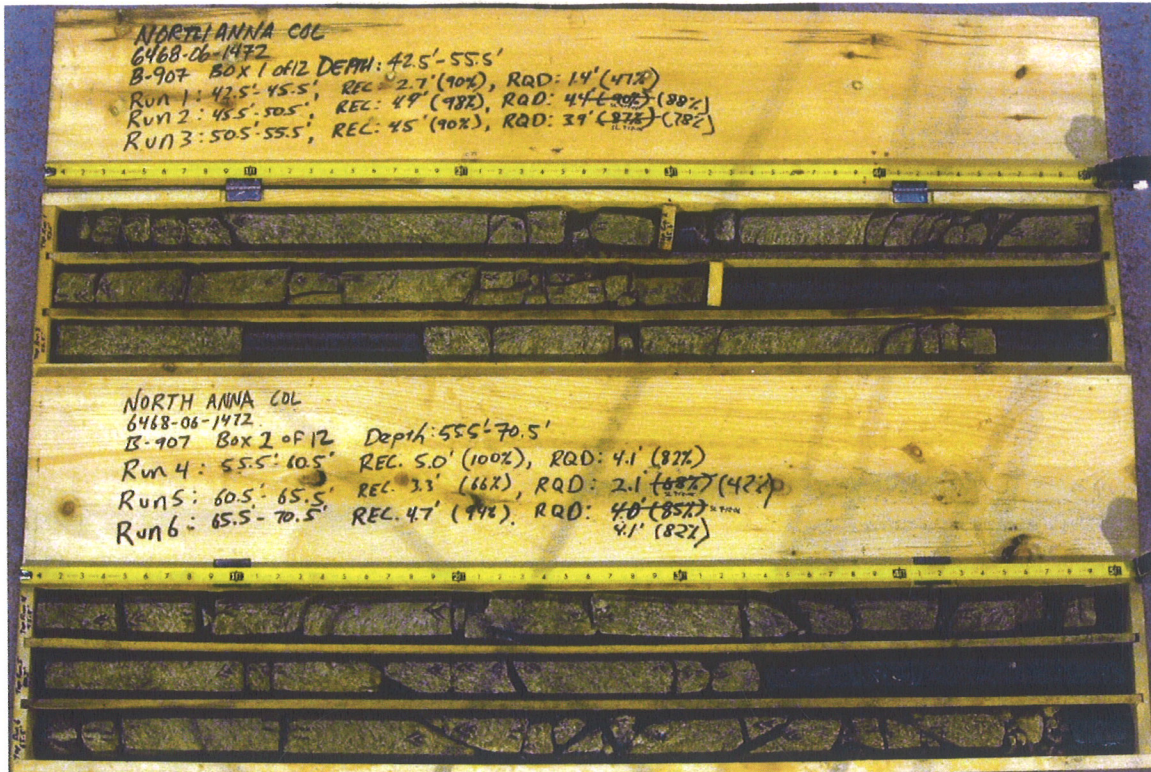 NORTH ANNA COL
6468-06-1472
B-907 BOX 1 of 12 DEPTH: 42.5'-55.5'
Run 1: 42.5'-45.5', REC: 2.7' (90%), RQD: 1.4' (47%)
Run 2: 45.5'-50.5', REC: 4.9' (98%), RQD: 4.4' (90%) (88%)
Run 3: 50.5'-55.5', REC: 4.5' (90%), RQD: 3.9' (87%) (78%)
NORTH ANNA COL
6468-06-1472
B-907 Box 2 of 12 Depth: 55.5'-70.5'
Run 4: 55.5'-60.5' REC. 5.0' (100%), RQD: 4.1' (82%)
Run 5: 60.5'-65.5' REC. 3.3' (66%), RQD: 2.1' (68%) (42%)
Run 6: 65.5'-70.5' REC. 4.7' (94%). RQD: 4.0' (85%)
4.1' (82%)